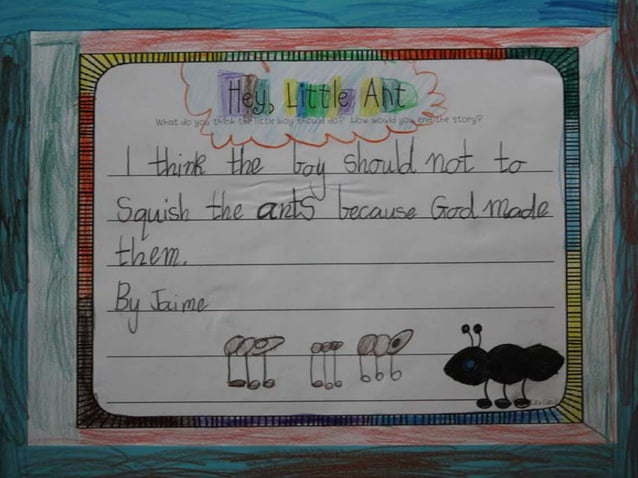 Hey, Little Ant
What do you think the little boy should do? How would you end the story?
I think the boy should not to
Squish the ants because God made
them.
By Jaime